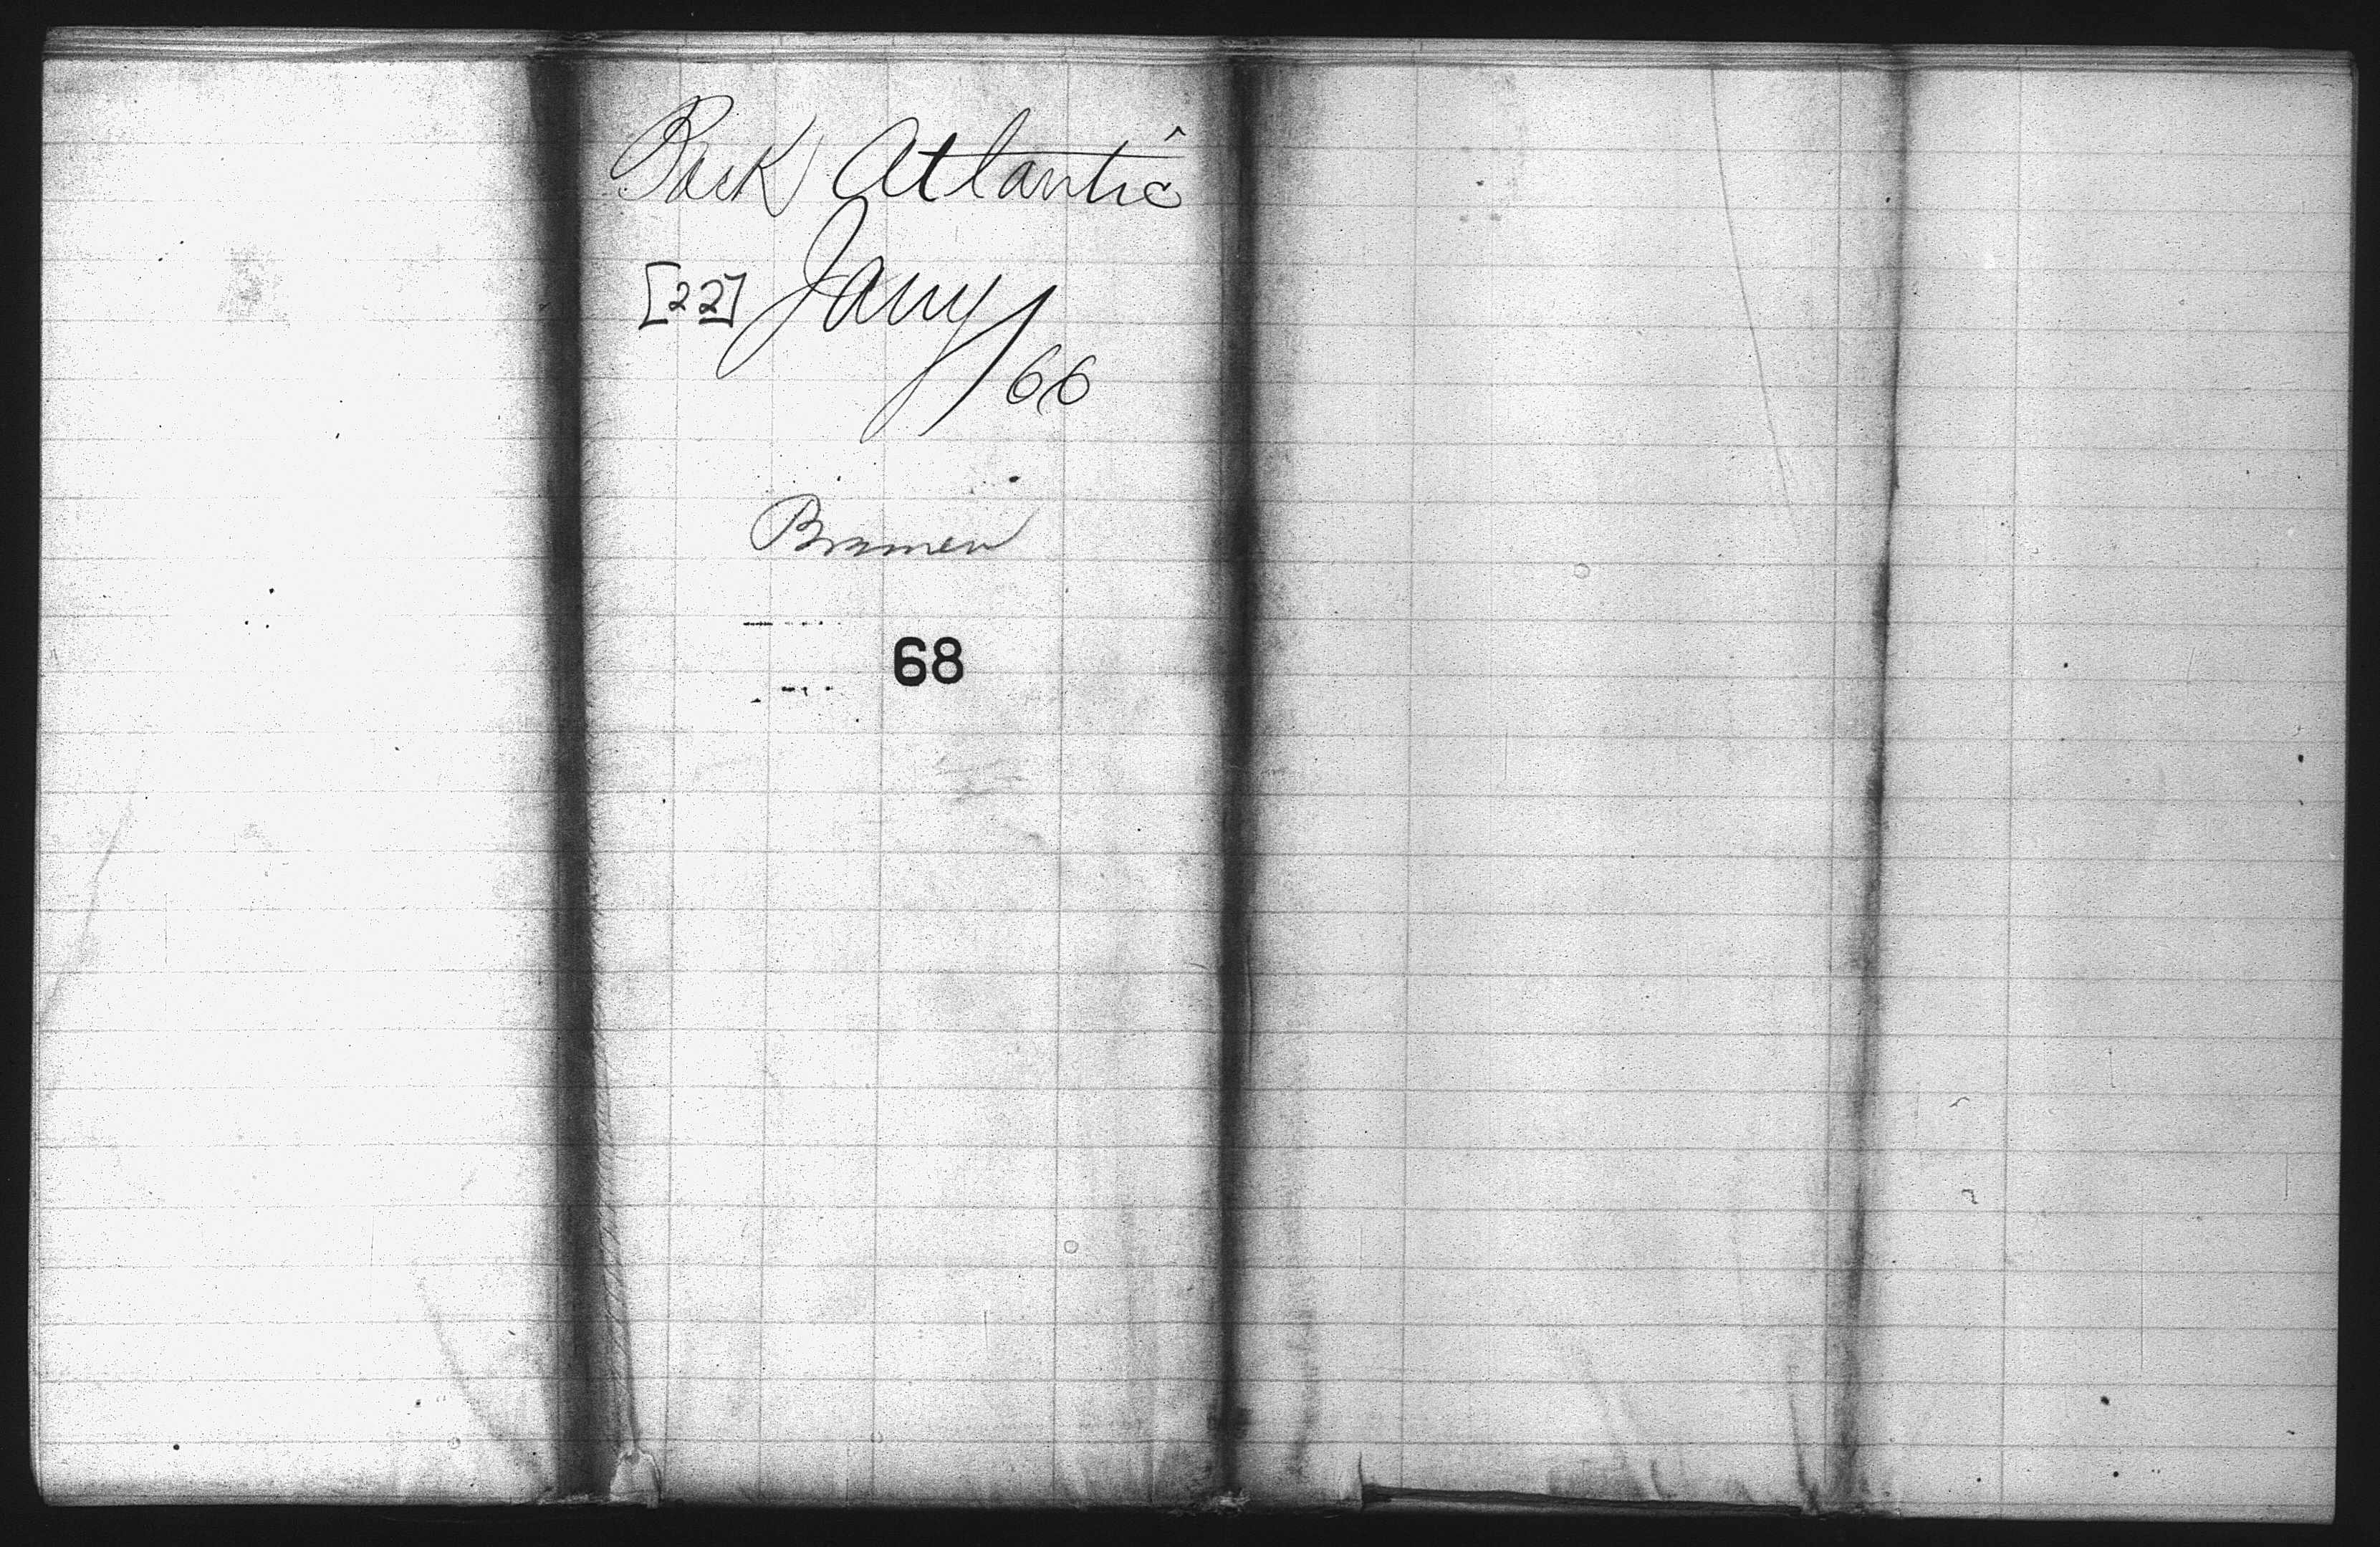 Bark Atlantic
[22] Jany
/66
Bremen
68